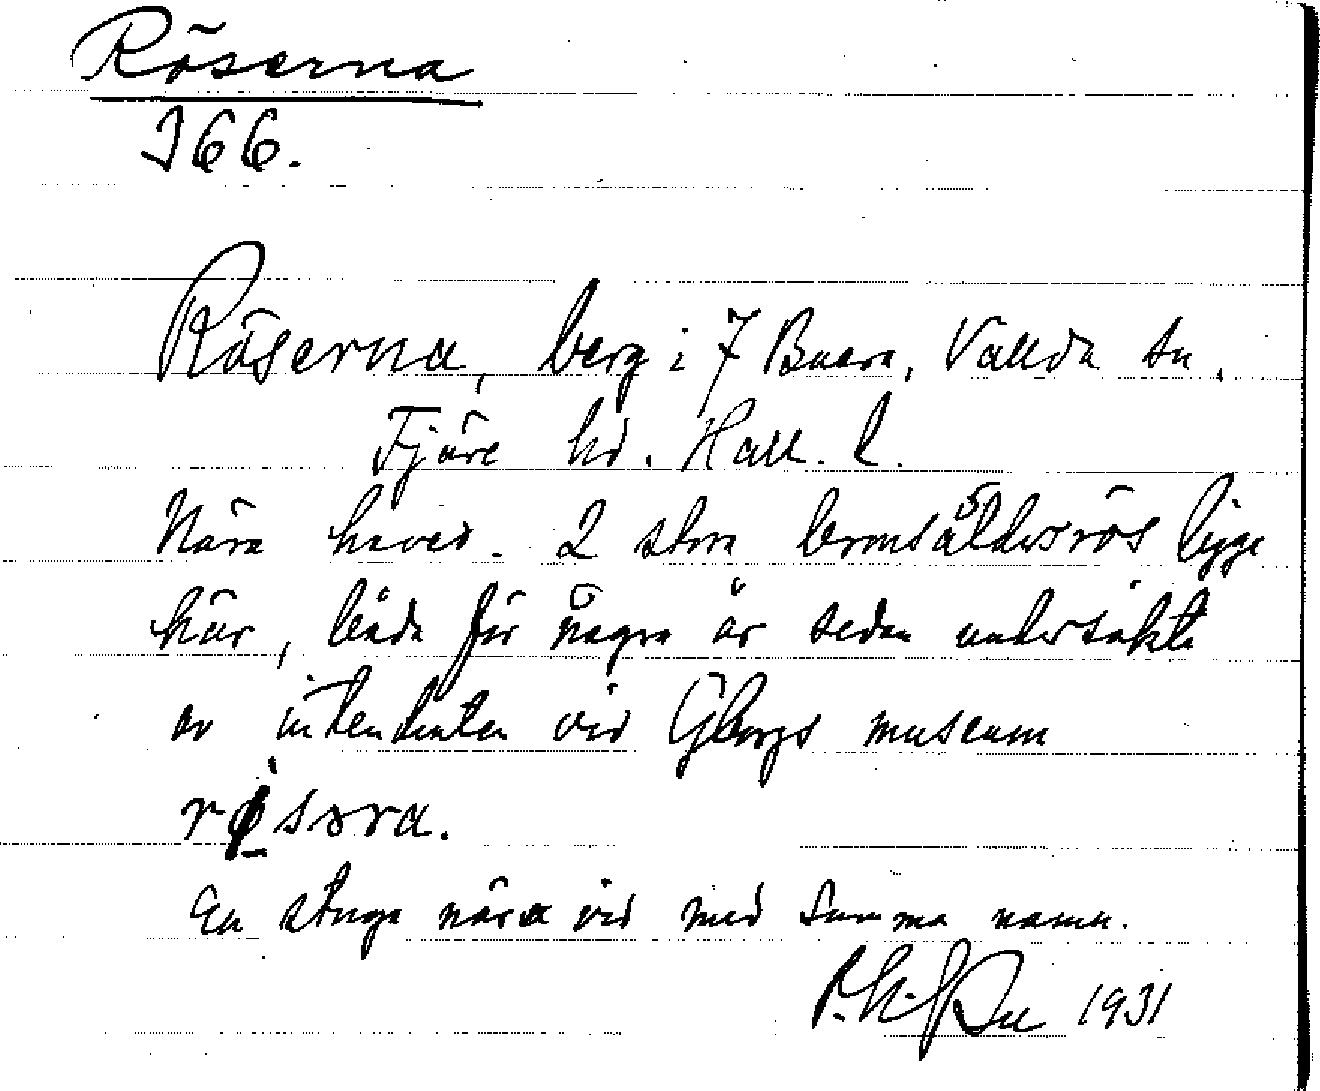 Röserna
I 66.
Röserna, berg i 7 Buera, Vallda sn,
Fjäre hd. Hall. l.
Nära havet. 2 stora bronsåldersrös ligga
här, båda för några år sedan undersökta
av intendenten vid Gborgs museum
En stuga nära vid med samma namn.
1931